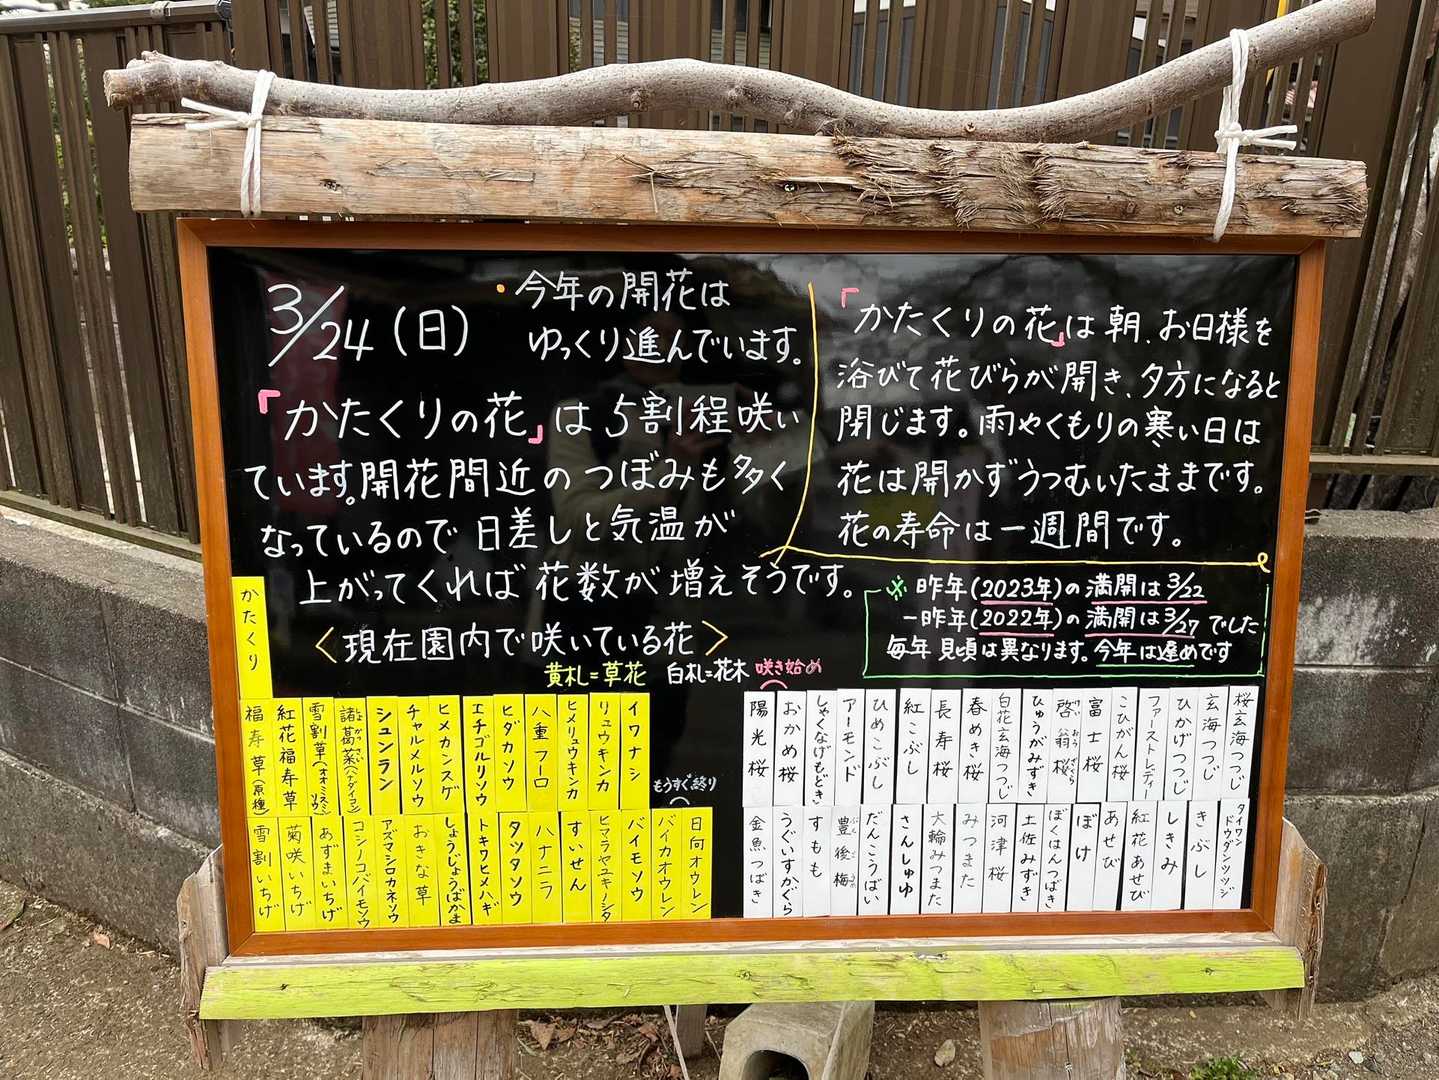 3/24(日)
・今年の開花は
ゆっくり進んでいます。
「かたくりの花」は5割程咲い
ています。開花間近のつぼみも多く
なっているので日差しと気温が
上がってくれば花数が増えそうです。
「かたくりの花」は朝、お日様を
浴びて花びらが開き、夕方になると
閉じます。雨やくもりの寒い日は
花は開かずうつむいたままです。
花の寿命は一週間です。
※昨年(2023年)の満開は3/22
一昨年(2022年)の満開は3/27でした
毎年見頃は異なります。今年は遅めです
<現在園内で咲いている花>
黄札=草花 白札=花木 咲き始め
かたくり
福寿草(原種)
紅花福寿草
雪割草(オオミスミソウ)
諸葛菜(ハナダイコン)
シュンラン
チャルメルソウ
ヒメカンスゲ
エチゴルリソウ
ヒダカソウ
八重フーロ
ヒメリュウキンカ
リュウキンカ
イワナシ
雪割いちげ
菊咲いちげ
あずまいちげ
コシノコバイモソウ
アズマシロカネソウ
おきな草
しょうじょうばかま
トキワヒメハギ
タツタソウ
ハナニラ
すいせん
ヒマラヤユキノシタ
バイモソウ
もうすぐ終り
バイカオウレン
日向オウレン
陽光桜
おかめ桜
しゃくなげもどき
アーモンド
ひめこぶし
紅こぶし
長寿桜
春めき桜
白花玄海つつじ
ひゅうがみずき
啓翁桜
けいおうざくら
富士桜
こひがん桜
ファーストレディー
ひかげつつじ
玄海つつじ
桜玄海つつじ
金魚つばき
うぐいすかぐら
すもも
豊後梅
ぶんごうめ
だんこうばい
さんしゅゆ
大輪みつまた
みつまた
河津桜
土佐みずき
ぼくはんつばき
ぼけ
あせび
紅花あせび
しきみ
きぶし
タイワンドウダンツツジ